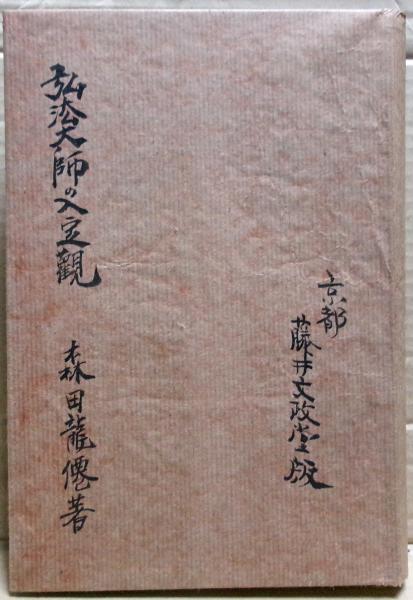 京都
藤井文政堂版
弘法大師の入定觀
森田龍僊著